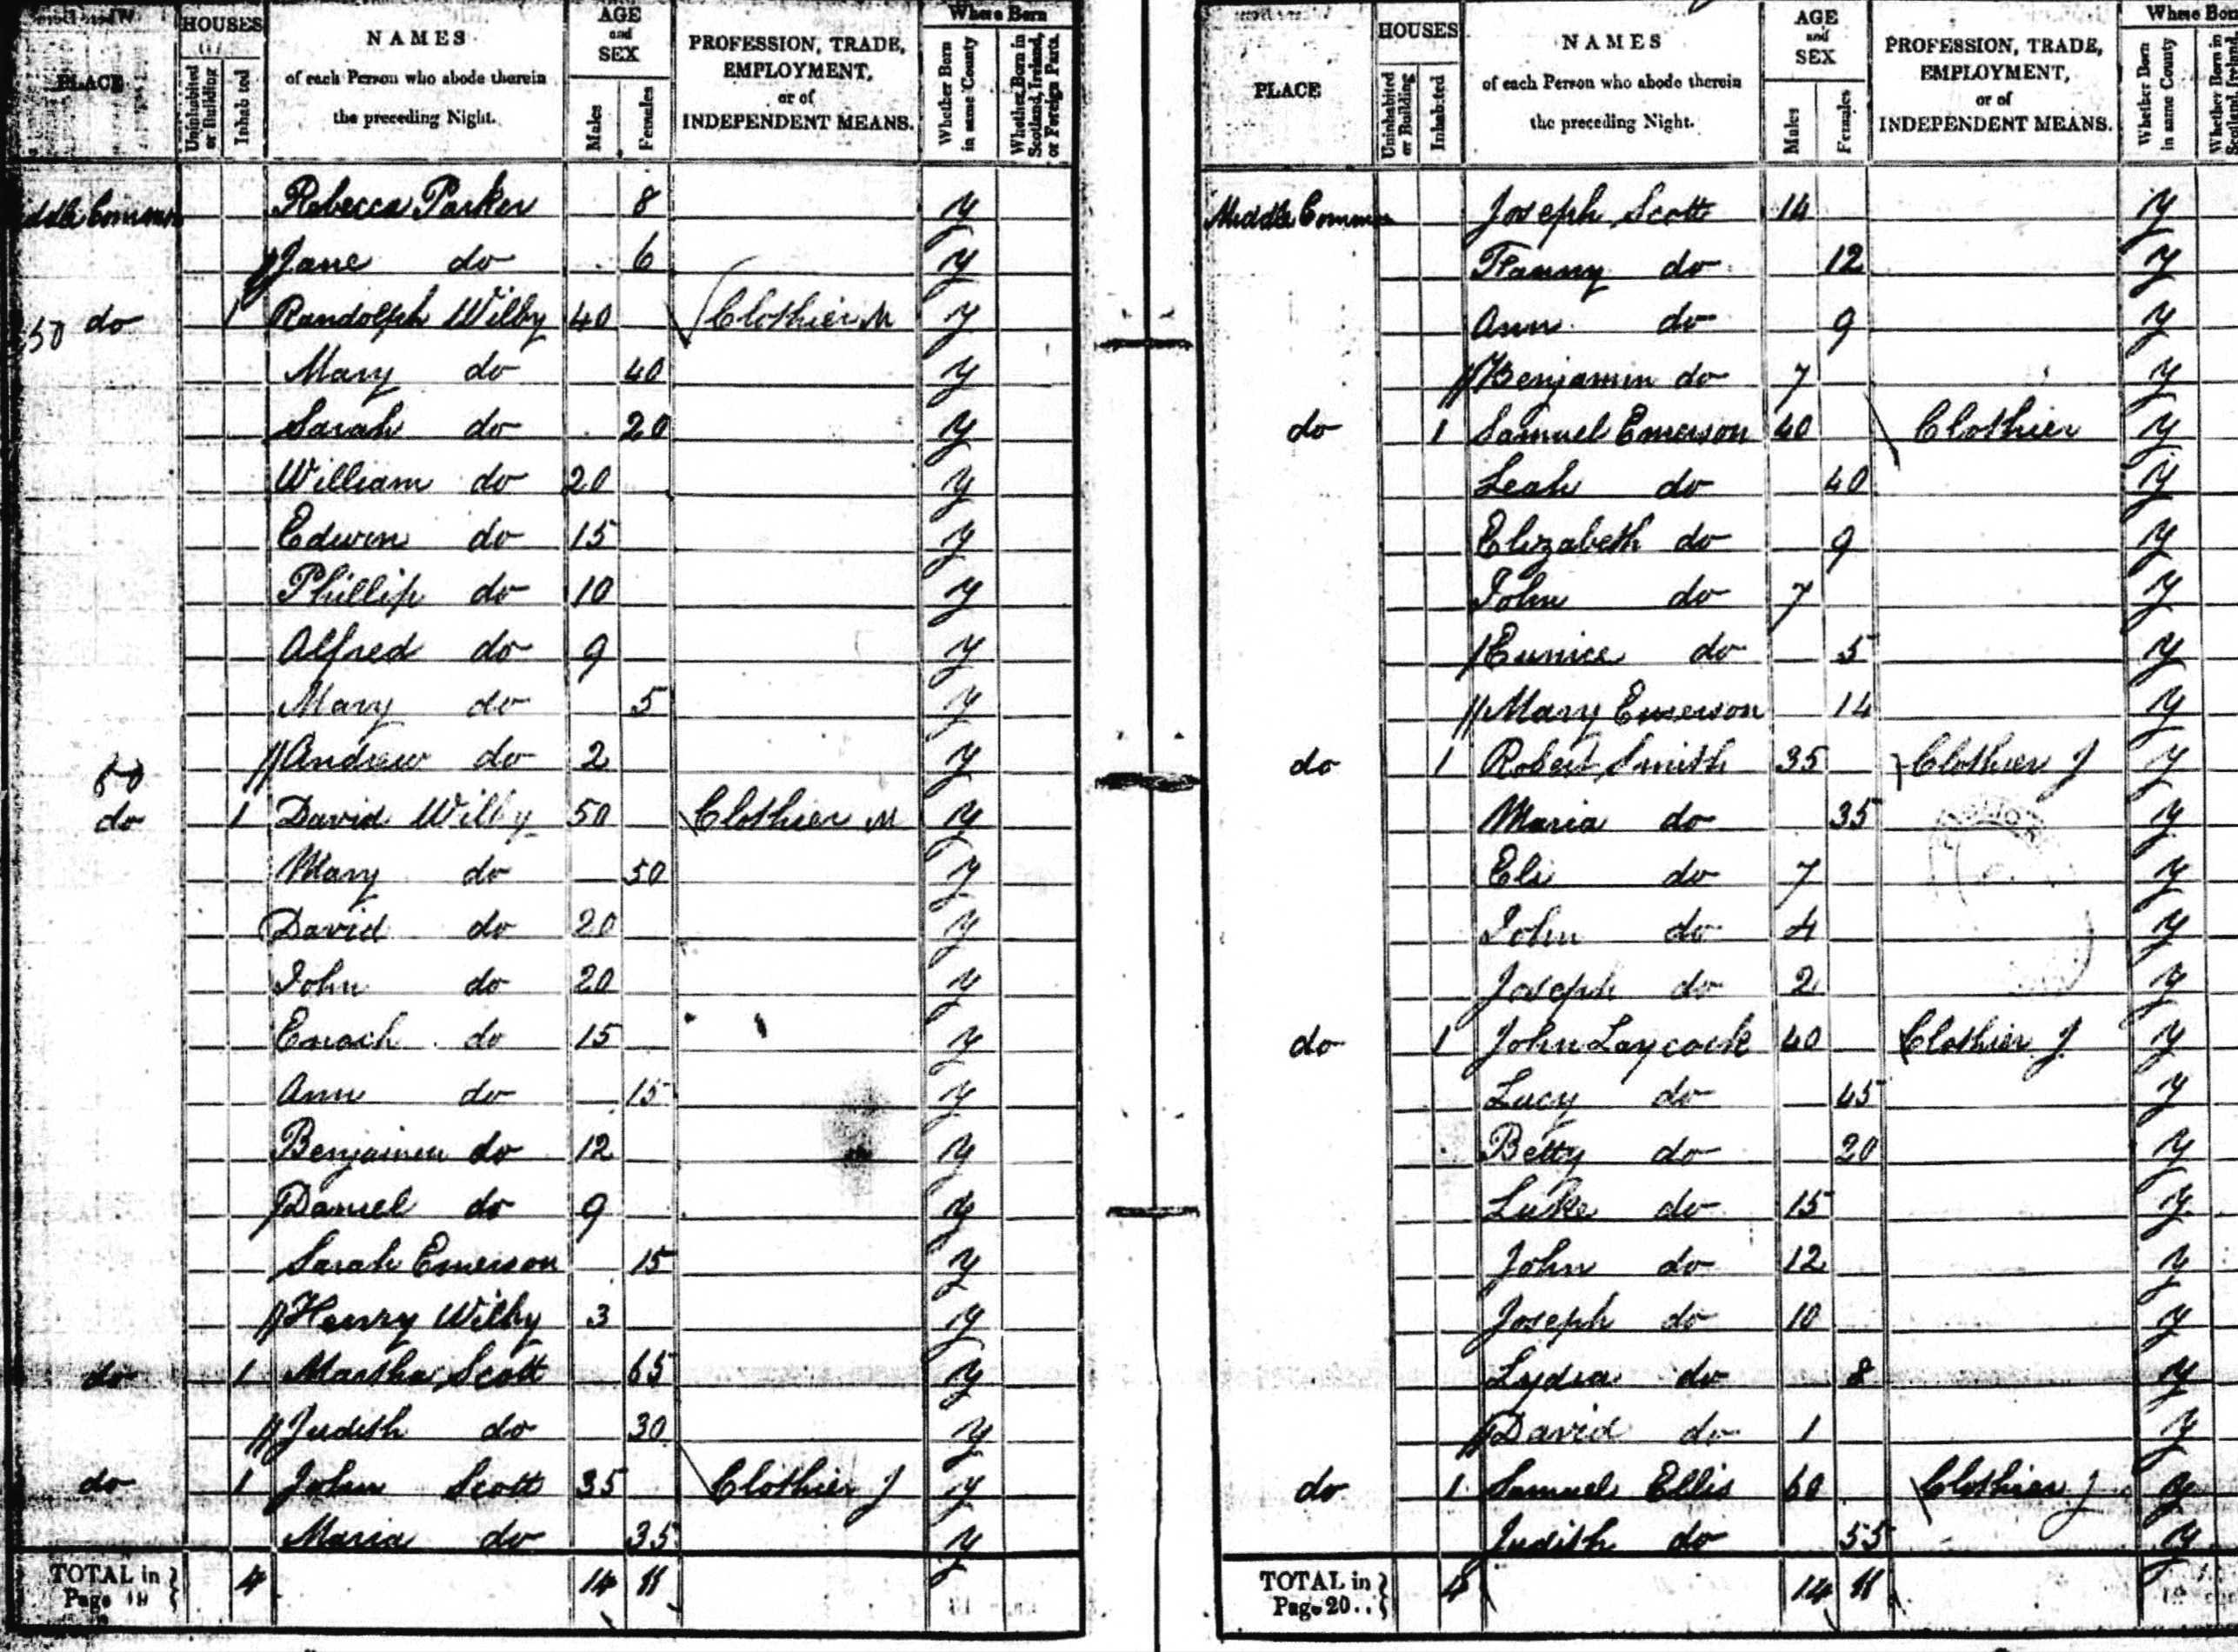 PLACE HOUSES Uninhabited or Building Inhabited NAMES of each Person who abode therein the preceding Night. AGE and SEX Males Females PROFESSION, TRADE, EMPLOYMENT, or of INDEPENDENT MEANS. Where Born Whether Born in same County Whether Born in Scotland, Ireland, or Foreign Parts.
ddle Common Rebecca Parker 8 y
Jane do 6 y
50 do 1 Randolph Wilby 40 Clothier M y
Mary do 40 y
Sarah do 20 y
William do 20 y
Edwin do 15 y
Phillip do 10 y
Alfred do 9 y
Mary do 5 y
Andrew do 2 y
50
do 1 David Wilby 50 Clothier M y
Mary do 50 y
David do 20 y
John do 20 y
Enoch do 15 y
Ann do 15 y
Benjamin do 12 y
Daniel do 9 y
Sarah Emerson 15 y
Henry Wilby 3 y
do 1 Martha Scott 65 y
Judith do 30 y
do 1 John Scott 35 Clothier J y
Maria do 35 y
TOTAL in Page 4 14 11
PLACE HOUSES Uninhabited or Building Inhabited NAMES of each Person who abode therein the preceding Night. AGE and SEX Males Females PROFESSION, TRADE, EMPLOYMENT, or of INDEPENDENT MEANS. Where Bor Whether Born in same County Whether Born in Scotland, Ireland,
Middle Common Joseph Scott 14 y
Fanny do 12 y
Ann do 9 y
Benjamin do 7 y
do 1 Samuel Emerson 40 Clothier y
Leah do 40 y
Elizabeth do 9 y
John do 7 y
Eunice do 5 y
Mary Emerson 14 y
do 1 Robert Smith 35 Clothier J y
Maria do 35 y
Eli do 7 y
John do 4 y
Joseph do 2 y
do 1 John Laycock 40 Clothier J y
Lucy do 45 y
Betty do 20 y
Luke do 15 y
John do 12 y
Joseph do 10 y
Lydia do 8 y
David do 1 y
do 1 Samuel Ellis 60 Clothier J y
Judith do 55 y
TOTAL in Page 20.. 4 14 11